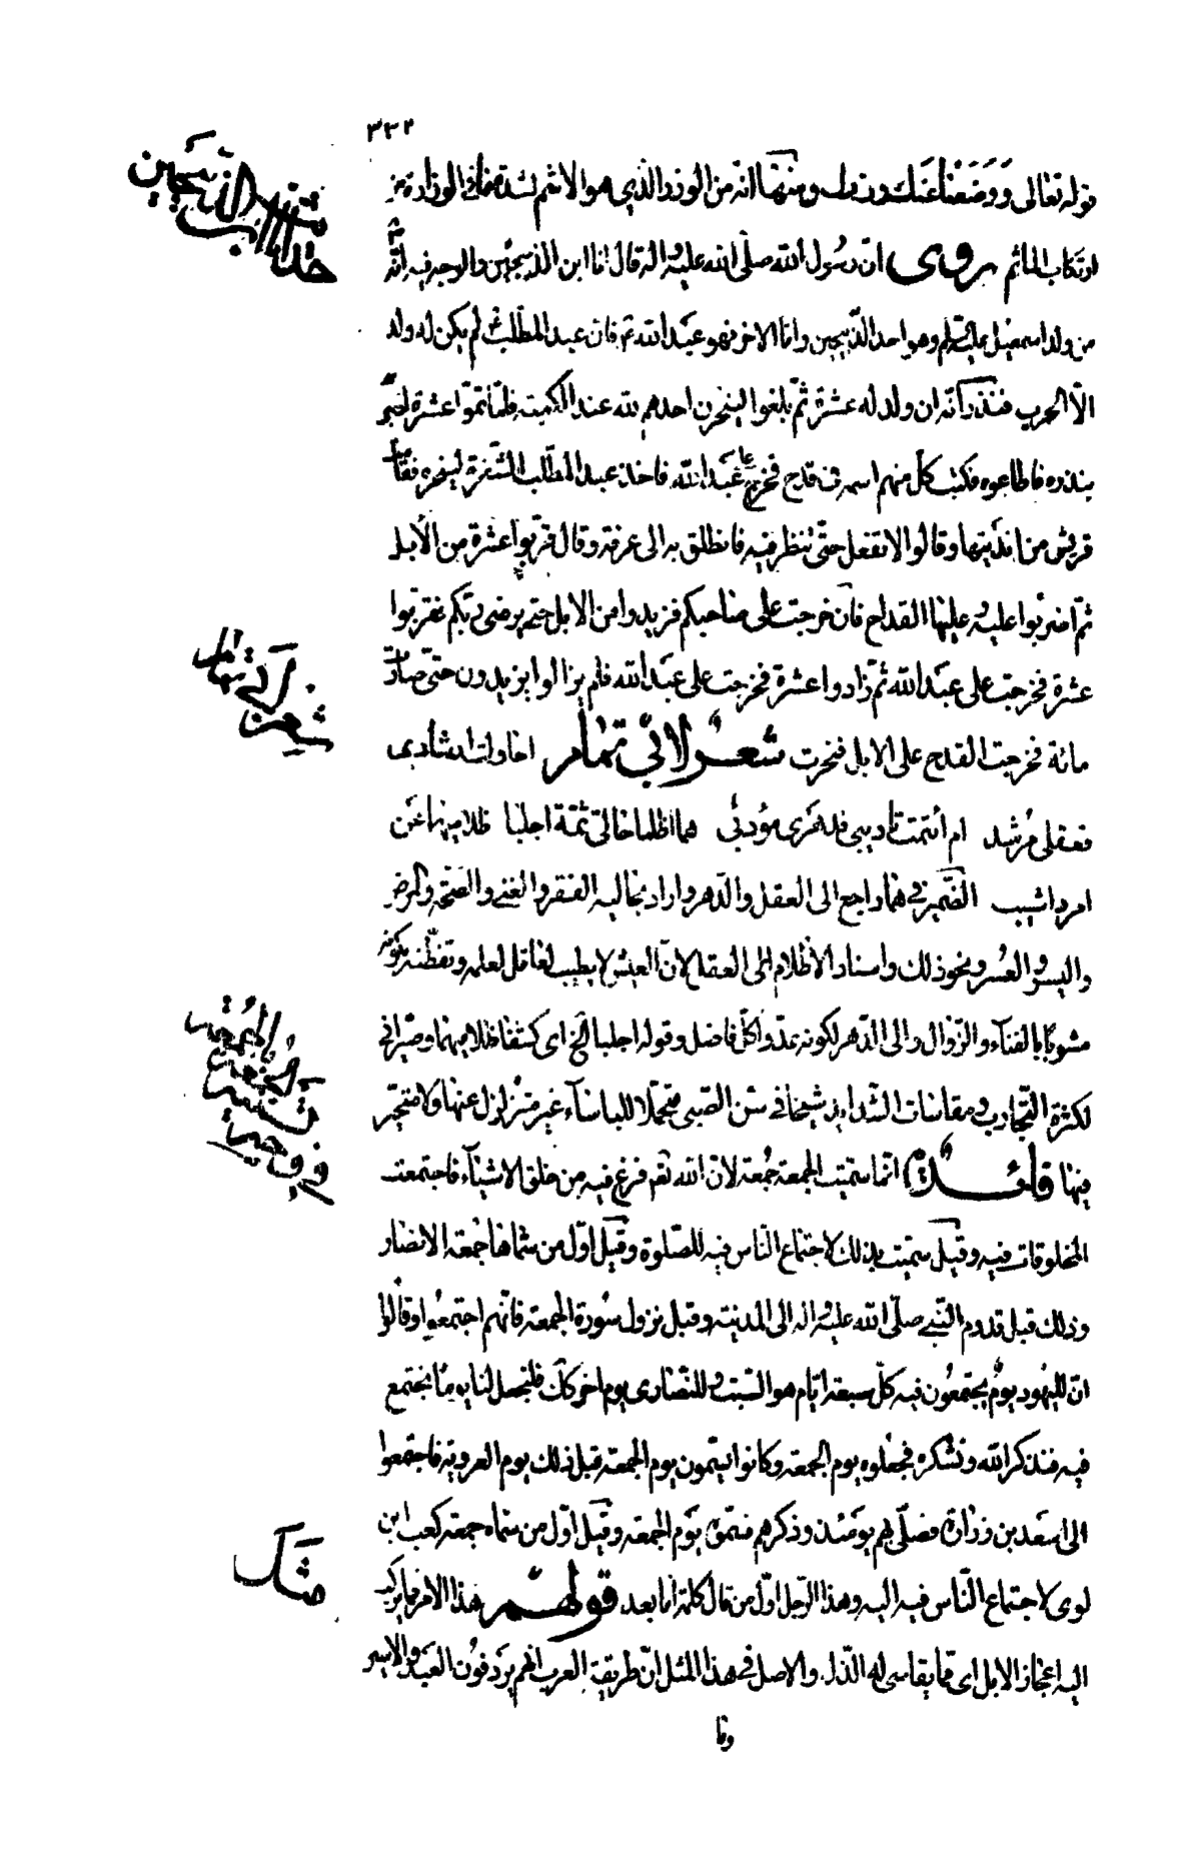 ٣٣٢
قوله تعالى ووضعنا عنك وزرك ومنها انه من الوزر الذي هو الاثم لشدة ما في الوزارة من
ارتكاب الماثم روى ان رسول الله صلى الله عليه واله قال انا ابن الذبيحين والوجه فيه انه
من ولد اسمعيل عليه السلم وهو احد الذبيحين واما الاخر فهو عبد الله ثم فان عبد المطلب لم يكن له ولد
الا الحرب فنذر انه ان ولد له عشرة ثم بلغوا لينحرن احدهم لله عند الكعبة فلما تموا عشرة اخبرهم
بنذره فاطاعوه فكتب كل منهم اسمه في قدح فخرج على عبد الله فاخذ عبد المطلب الشفرة لينحره فقامت
قريش من انديتها وقالوا لا تفعل حتى ننظر فيه فانطلق به الى عرفة وقال قربوا عشرة من الابل
ثم اضربوا عليه وعليها القداح فان خرجت على صاحبكم فزيدوا من الابل حتى يرضى ربكم فقربوا
عشرة فخرجت على عبد الله ثم زادوا عشرة فخرجت على عبد الله فلم يزالوا يزيدون حتى صارت
مائة فخرجت القدح على الابل فنحرت شعر لابي تمام احاولت ارشادى
فعقلى مرشد ام استمت تاديبى فدهرى مؤدبى هما اظلما حالى ثمة اجليا ظلاميهما عن
امرد اشيب الضمير في هما راجع الى العقل والدهر واراد بحاليه الفقر والغنى والصحة والمرض
واليسر والعسر ونحو ذلك واسناد الاظلام الى العقل لان العيش لا يطيب لعاقل لعلمه وتفطنه بكونه
مشوبا بالفناء والزوال والى الدهر لكونه عدوا لكل فاضل وقوله اجليا الخ اى كشفا ظلاميهما وصيرانى
لكثرة التجارب ومقاسات الشدايد شيخا فى سن الصبى متحملا للباساء غير متزلزل عنها ولا متحير
فيها فائدة انما سميت الجمعة جمعة لان الله تعم فرغ فيه من خلق الاشياء فاجتمعت
المخلوقات فيه وقيل سميت بذلك لاجتماع الناس فيه للصلوة وقيل اول من سماها جمعة الانصار
وذلك قبل قدوم النبي صلى الله عليه واله الى المدينة وقبل نزول سورة الجمعة فانهم اجتمعوا وقالوا
ان لليهود يوم يجتمعون فيه كل سبعة ايام هو السبت وللنصارى يوم اخر كك فلنجعل لنا يوما نجتمع
فيه فنذكر الله ونشكره فجعلوه يوم الجمعة وكانوا يسمون يوم الجمعة قبل ذلك يوم العروبة فاجتمعوا
الى اسعد بن زرارة فصلى بهم يومئذ وذكرهم فسموه يوم الجمعة وقيل اول من سماه جمعة كعب ابن
لوى لاجتماع الناس فيه اليه وهذا الرجل اول من قال كلمة اما بعد قولهم هذا الامر مما يركب
اليه اعجاز الابل اى مما يقاسى له الذل والاصل فى هذا المثل ان طريقة العرب انهم يردفون العبد والاسير
وفا
شعر ابي تمام
في وجه
تسمية
الجمعة
مثل